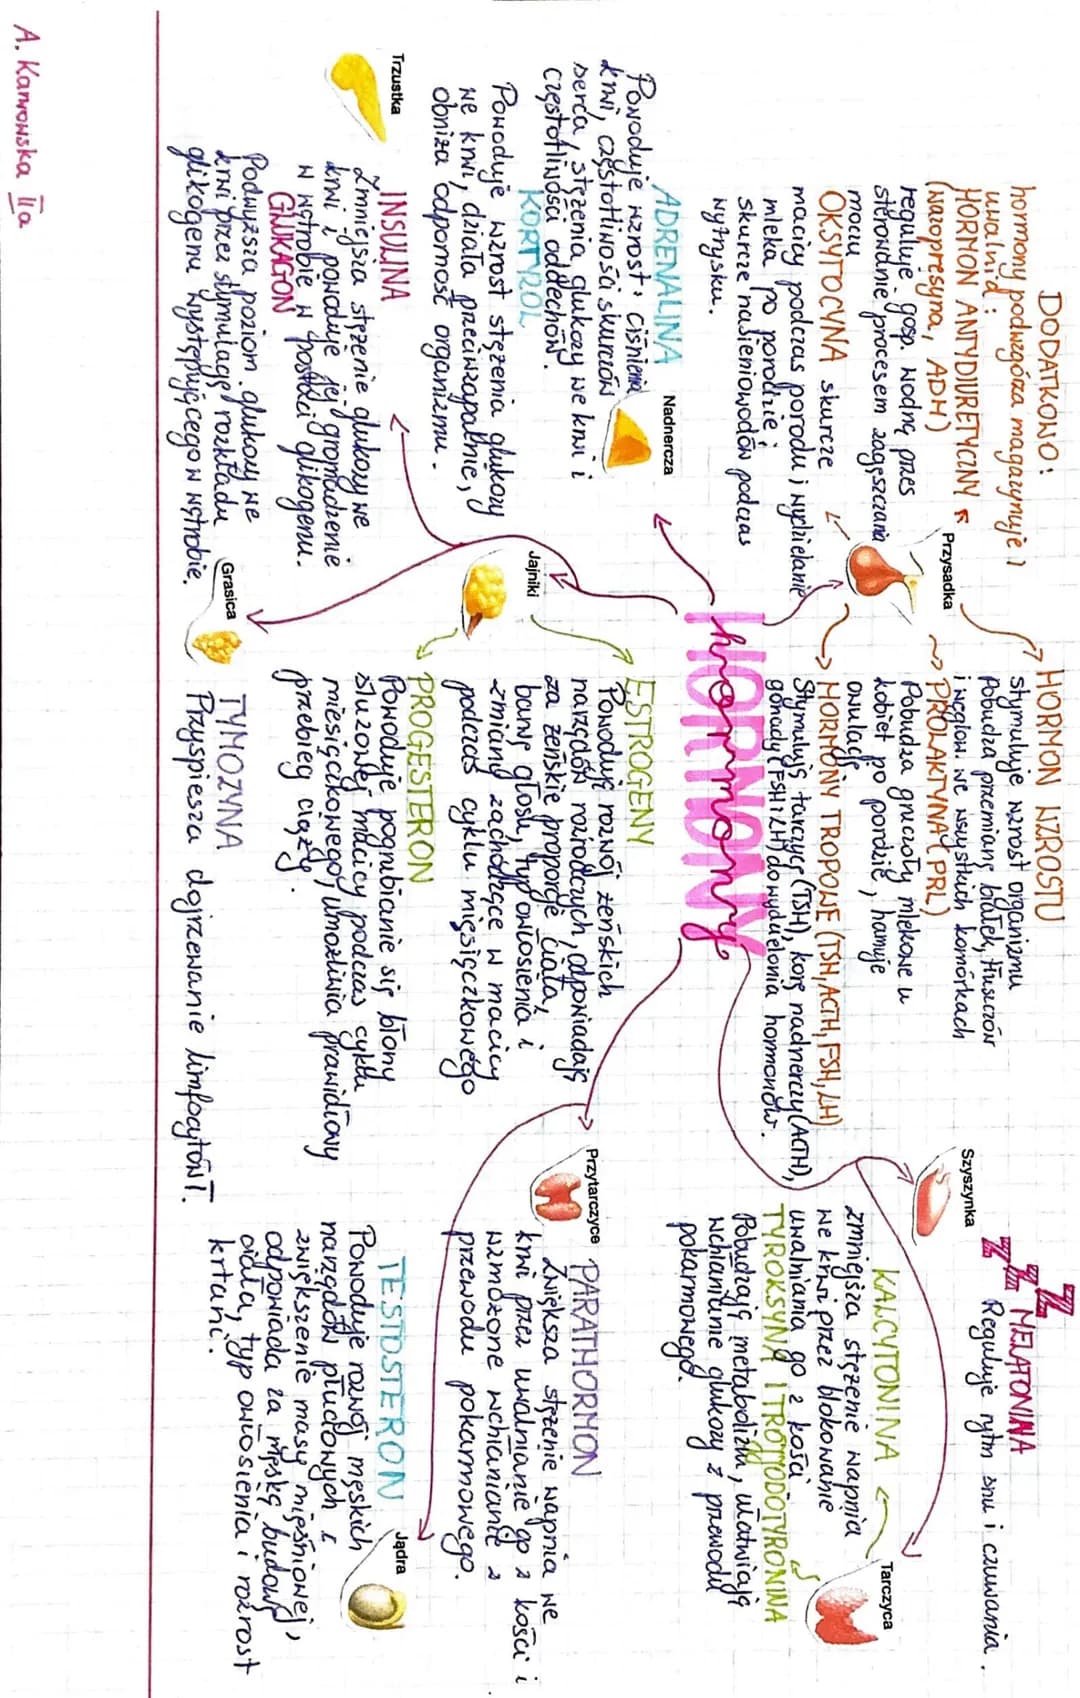 Hormony
HORMONY
DODATKOWO:
hormony podwzgórza magazynuje i
uwalnia:
HORMON ANTYDIURETYCZNY
(wazopresyna, ADH)
reguluje gosp. wodną przez
sterowanie procesem zagęszczania
moczu
OKSYTOCYNA skurcze
macicy podczas porodu i wydzielanie
mleka po porodzie i
skurcze nasieniowodów podczas
wytrysku.
Przysadka
HORMON WZROSTU
stymuluje wzrost organizmu
Pobudza przemianę białek, tłuszczów
i węglow. we wszystkich komórkach
PROLAKTYNA (PRL)
Pobudza gruczoły mlekowe u
kobiet po porodzie, hamuje
owulację
HORMONY TROPOWE (TSH, ACTH, FSH, LH)
Stymulują tarczycę (TSH), korę nadnerczy (ACTH),
gonady (FSH i LH) do wydzielania hormonów.
Szyszynka
ZZZZ MELATONINA
Reguluje rytm snu i czuwania.
KALCYTONINA
zmniejsza stężenie wapnia
we krwi przez blokowanie
uwalniania go z kości
Tarczyca
TYROKSYNA I TRÓJJODOTYRONINA
Pobudzają metabolizm, ułatwiają
wchłanianie glukozy z przewodu
pokarmowego.
ADRENALINA
Nadnercza
Powoduje wzrost: ciśnienia
krwi, częstotliwości skurczów
serca, stężenia glukozy we krwi i
częstotliwości oddechów.
KORTYZOL
Powoduje wzrost stężenia glukozy
we krwi, działa przeciwzapalnie,
obniża odporność organizmu.
Jajniki
ESTROGENY
Powodują rozwój żeńskich
narządów rozrodczych, odpowiadają
za żeńskie proporcje ciała,
barwę głosu, typ owłosienia i
zmiany zachodzące w macicy
podczas cyklu miesiączkowego
PROGESTERON
Powoduje pogrubianie się błony
śluzowej macicy podczas cyklu
miesiączkowego, umożliwia prawidłowy
przebieg ciąży.
Przytarczyce
PARATHORMON
Zwiększa stężenie wapnia we
krwi przez uwalnianie go z kości i
wzmożone wchłanianie z
przewodu pokarmowego.
Trzustka
INSULINA
Zmniejsza stężenie glukozy we
krwi i powoduje jej gromadzenie
w wątrobie w postaci glikogenu.
GLUKAGON
Podwyższa poziom glukozy we
krwi przez stymulację rozkładu
glikogenu występującego w wątrobie.
Grasica
TYMOZYNA
Przyspiesza dojrzewanie limfocytów T.
TESTOSTERON
Jądra
Powoduje rozwój męskich
narządów płciowych i
zwiększenie masy mięśniowej,
odpowiada za męską budowę
ciała, typ owłosienia i rozrost
krtani.
A. Karwowska IIa